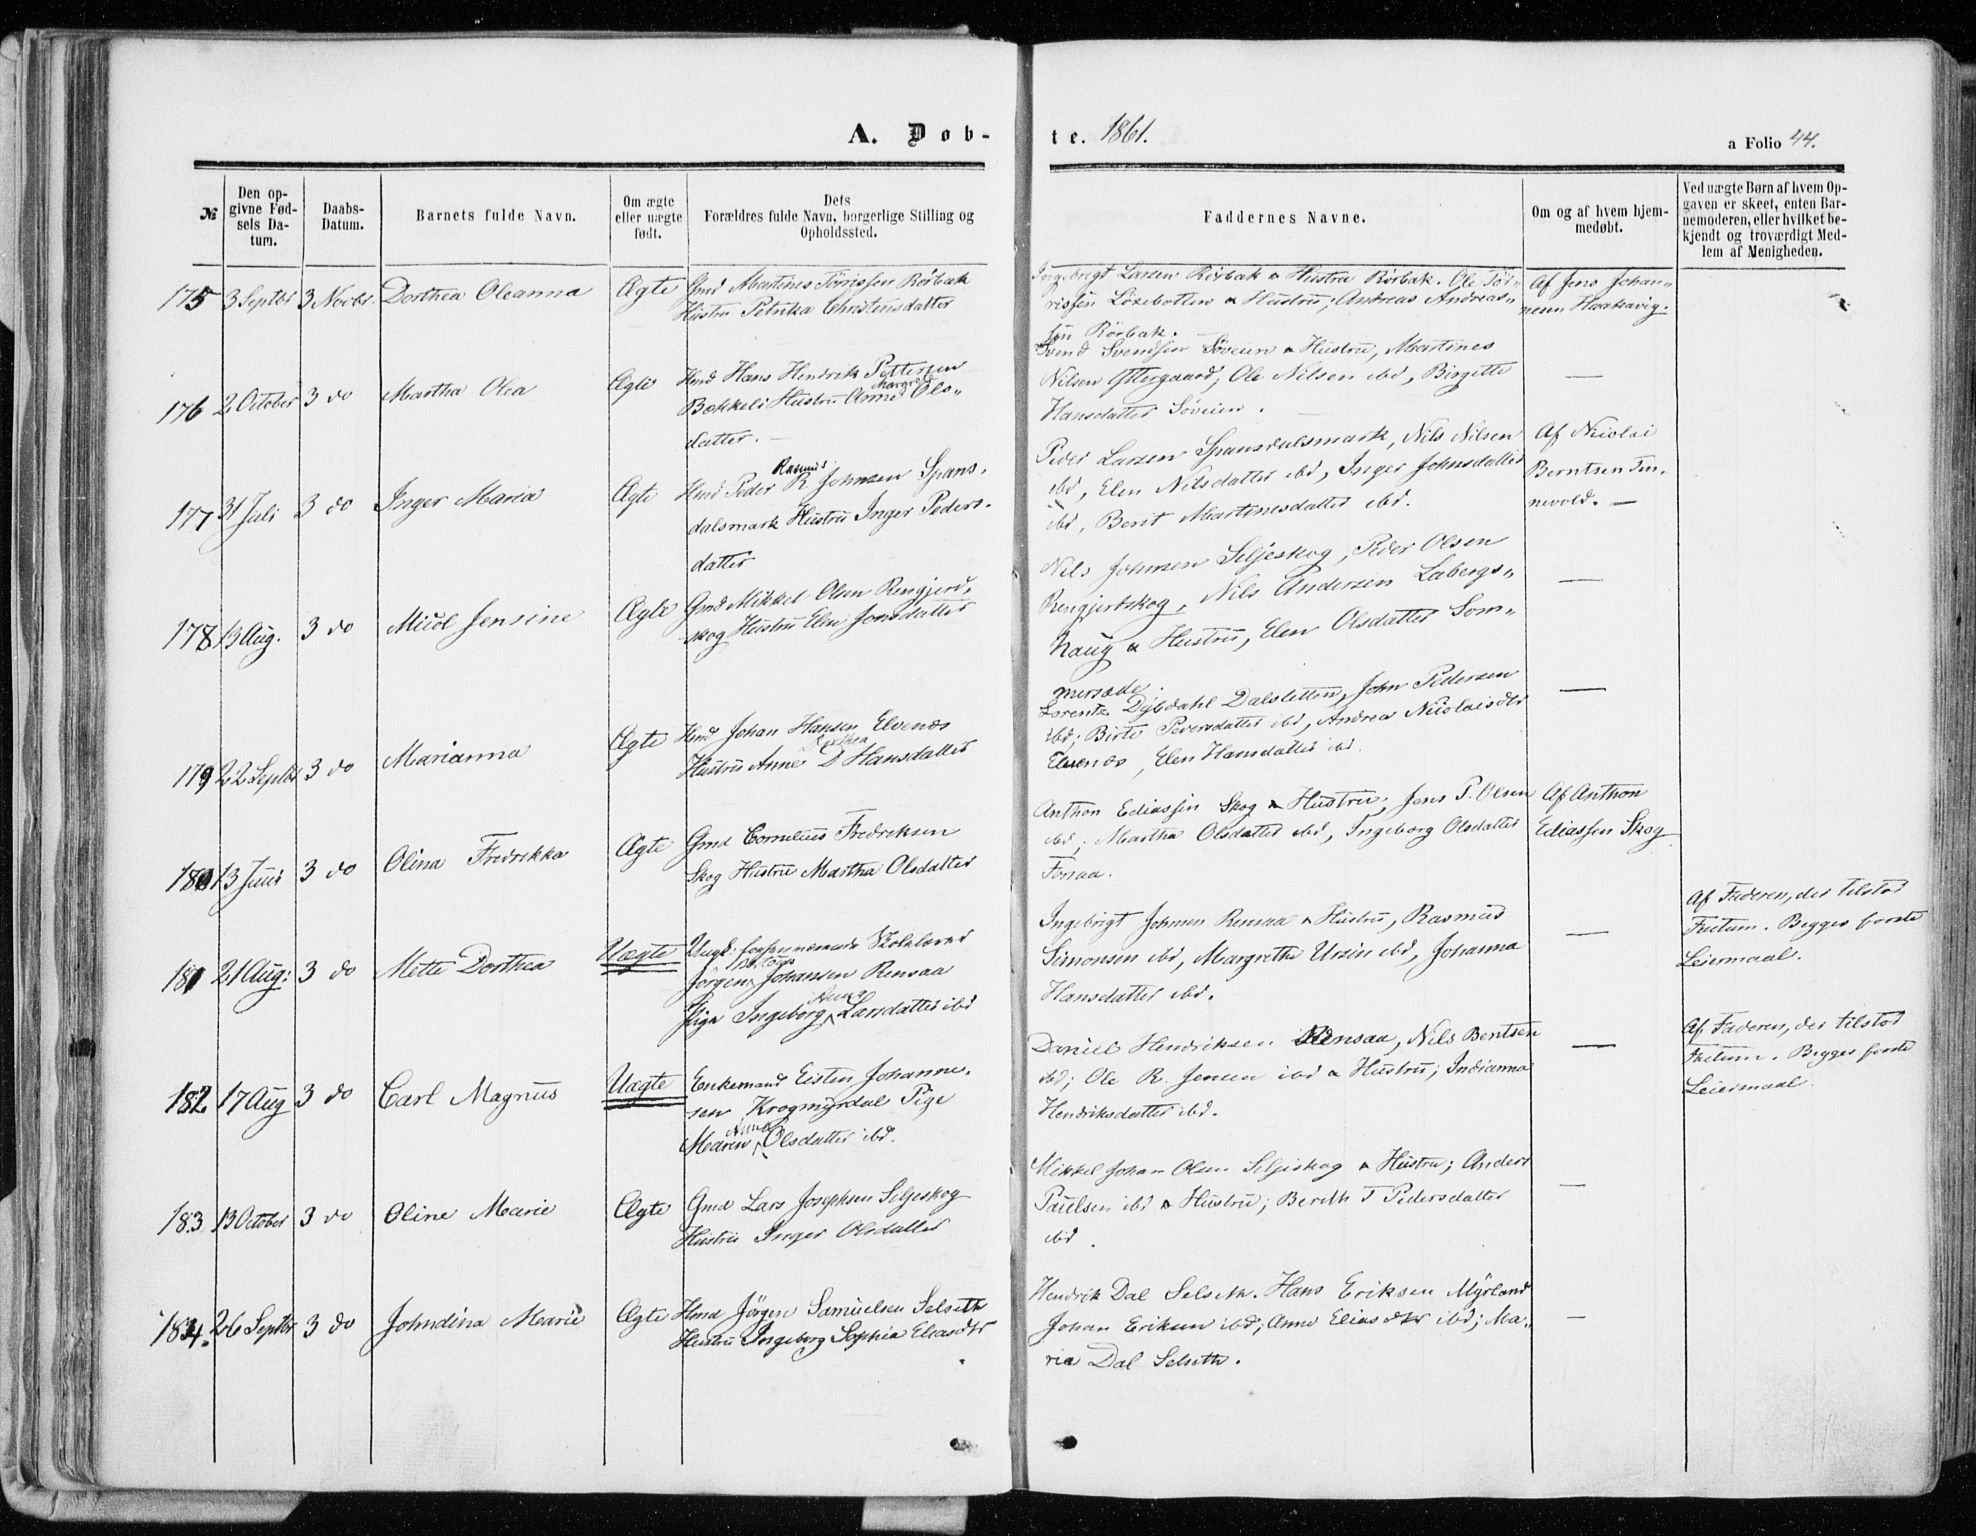 A. Dob-
te. 1861.
a Folio 44.
№
Den op-
givne Fød-
sels Da-
tum.
Daabs-
Datum.
Barnets fulde Navn.
Om ægte
eller uægte
født.
Dets
Forældres fulde Navn, borgerlige Stilling og
Opholdssted.
Faddernes Navne.
Om og af hvem hjem-
medøbt.
Ved uægte Børn af hvem Op-
gaven er skeet, enten Bar-
nemoderen, eller hvilket be-
kjendt og troværdigt Med-
lem af Menigheden.
175 3 Septbr 3 Novbr. Dorthea Oleanna Ægte Gmd Martines Tørrissen Rørbak
Hustru Petrika Christensdatter
Ingebrigt Larsen Rørbak & Hustru Rørbak. Ole Tør-
rissen Løsebotten & Hustru, Andreas Andreas-
sen Rørbak.
Af Jens Johan-
nesen Haakavig.
176 2 October 3 do Martha Olea Ægte Hmd Hans Hendrik Pettersen
Bækkeli Hustru Anne Margrete Ols-
datter. —
Svend Svendsen Søveien & Hustru, Martines
Nilsen Yttergaard, Ole Nilsen ibd, Birgitte
Hansdatter Søveien.
—
177 31 Juli 3 do Inger Maria Ægte Hmd Peder Rasmus R Johnsen Spans-
dalsmark Hustru Inger Peders-
datter
Peder Larsen Spansdalsmark, Nils Nilsen
ibd, Elen Nilsdatter ibd, Inger Johnsdatter
ibd, Berit Martinesdatter ibd.
Af Nicolai
Berntsen Ten-
nevold. —
178 13 Aug. 3 do Micol Jensine Ægte Gmd Mikkel Olsen Rengjerd-
skog Hustru Elen Jonsdatter
Nils Johnsen Seljeskog, Peder Olsen
Rengjerdskog, Nils Andersen Labergs-
haug & Hustru, Elen Olsdatter Som-
mersæde.
—
179 22 Septbr 3 do Marianna Ægte Hmd Johan Hansen Elvenæs
Hustru Anne D Hansdatter
Lorentz Dybdahl Dalsletten, John Pedersen
ibd; Birte Pedersdatter ibd, Andrea Nicolaisdtr
Elvenæs, Elen Hansdatter ibd.
—
180 13 Juni 3 do Olina Fredrikka Ægte Gmd Cornelius Fredriksen
Skog Hustru Martha Olsdatter
Anthon Ediassen Skog & Hustru; Jens P. Olsen
ibd; Martha Olsdatter ibd, Ingeborg Olsdatter
Forsaa.
Af Anthon
Ediassen Skog
181 21 Aug: 3 do Mette Dorthea Uægte Ungk. Skolelærer
Jørgen Johansen Rensaa
Pige Ingeborg Anna Larsdatter ibd
Ingebrigt Johnsen Rensaa & Hustru, Rasmus
Simonsen ibd, Margrethe Ursin ibd, Johanna
Hansdatter ibd.
—
Af Faderen, der tilstod
Factum. Begges første
Leiermaal.
182 17 Aug 3 do Carl Magnus Uægte Enkemand Eisten Johanne-
sen Krogmyrdal Pige
Maren Anna Olsdatter ibd.
Daniel Hendriksen Rensaa, Nils Bentsen
ibd; Ole R. Jensen ibd & Hustru; Indianna
Hendriksdatter ibd.
—
Af Faderen, der tilstod
Factum. Begges første
Leiermaal.
183 13 October 3 do Oline Marie Ægte Gmd Lars Josephsen Seljeskog
Hustru Inger Olsdatter
Mikkel Johan Olsen Seljeskog & Hustru; Anders
Paulsen ibd & Hustru; Berith T Pedersdatter
ibd.
—
184. 26 Septbr 3 do Johndina Marie Ægte Hmd Jørgen Samuelsen Selseth
Hustru Ingeborg Sophia Eliasdtr
Hendrik Dal Selseth. Hans Eriksen Myrland
Johan Eriksen ibd; Anne Eliasdtr ibd; Ma-
ria Dal Selseth.
—